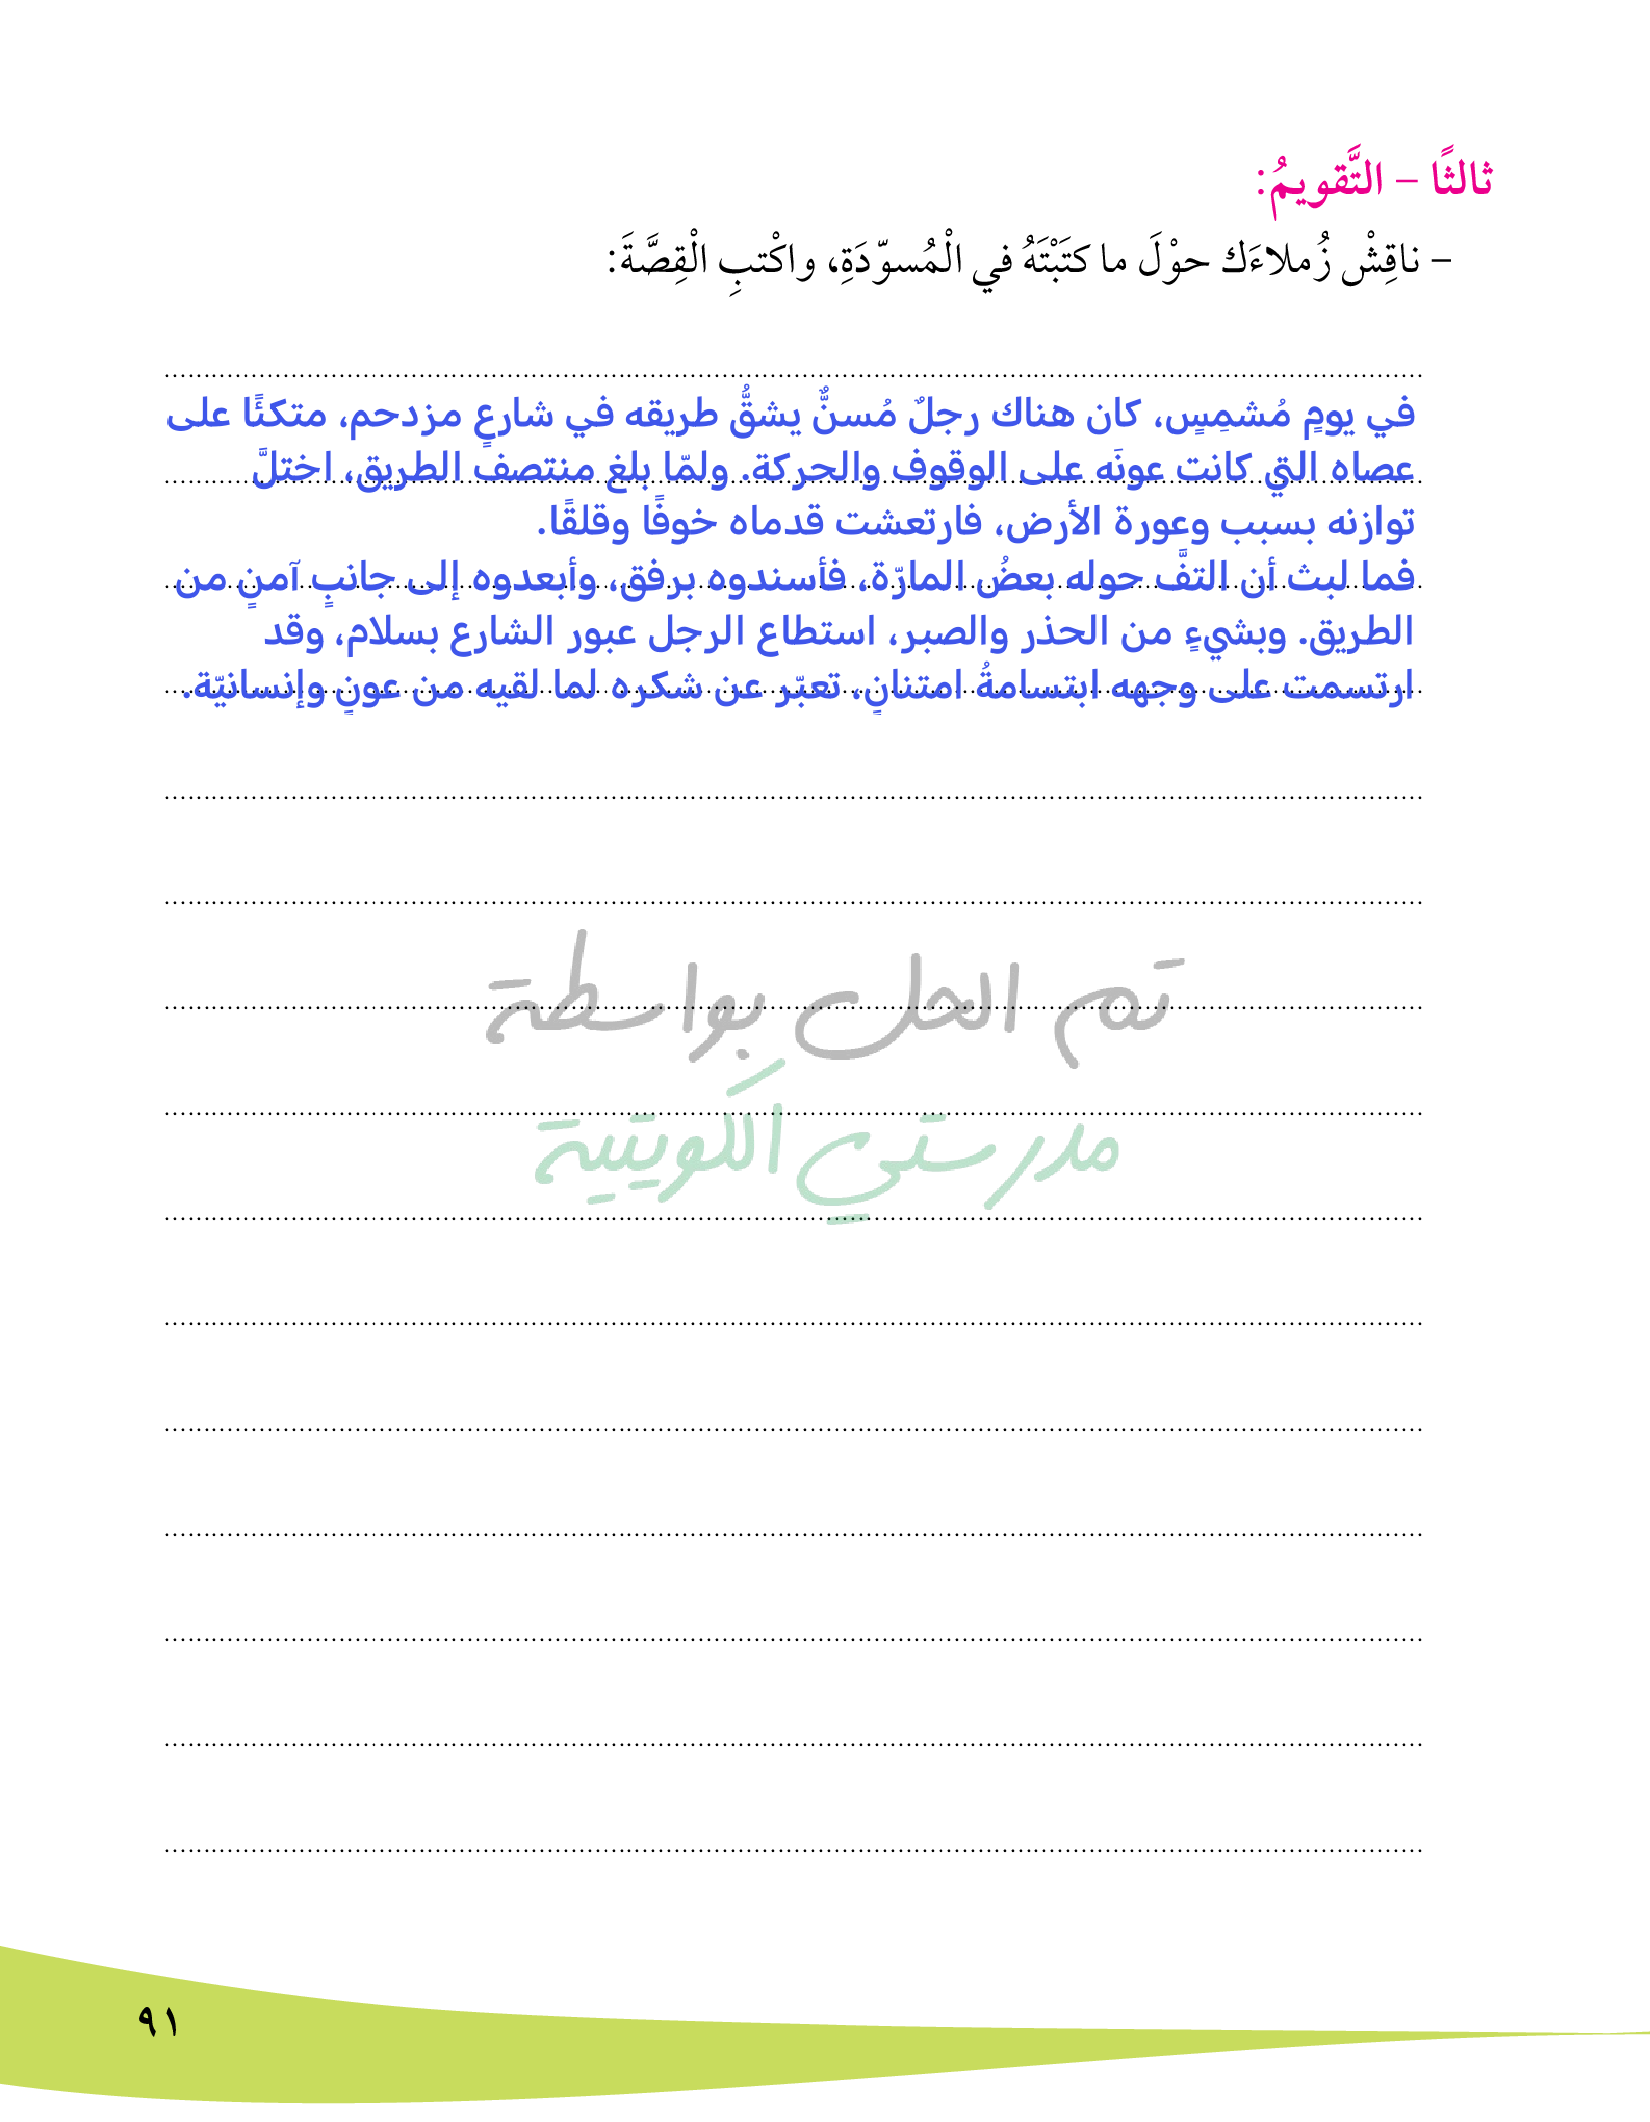 ثالثًا – التَّقويمُ:
– ناقِشْ زُملاءَك حوْلَ ما كتَبْتَهُ في الْمُسوّدَةِ، واكْتبِ الْقِصَّةَ:
في يومٍ مُشمِسٍ، كان هناك رجلٌ مُسنٌّ يشقُّ طريقه في شارعٍ مزدحم، متكئًا على
عصاه التي كانت عونَه على الوقوف والحركة. ولمّا بلغ منتصف الطريق، اختلَّ
توازنه بسبب وعورة الأرض، فارتعشت قدماه خوفًا وقلقًا.
فما لبث أن التفَّ حوله بعضُ المارّة، فأسندوه برفق، وأبعدوه إلى جانبٍ آمنٍ من
الطريق. وبشيءٍ من الحذر والصبر، استطاع الرجل عبور الشارع بسلام، وقد
ارتسمت على وجهه ابتسامةُ امتنانٍ، تعبّر عن شكره لما لقيه من عونٍ وإنسانيّة.
تم الحل بواسطة
مدرستي الكويتية
٩١